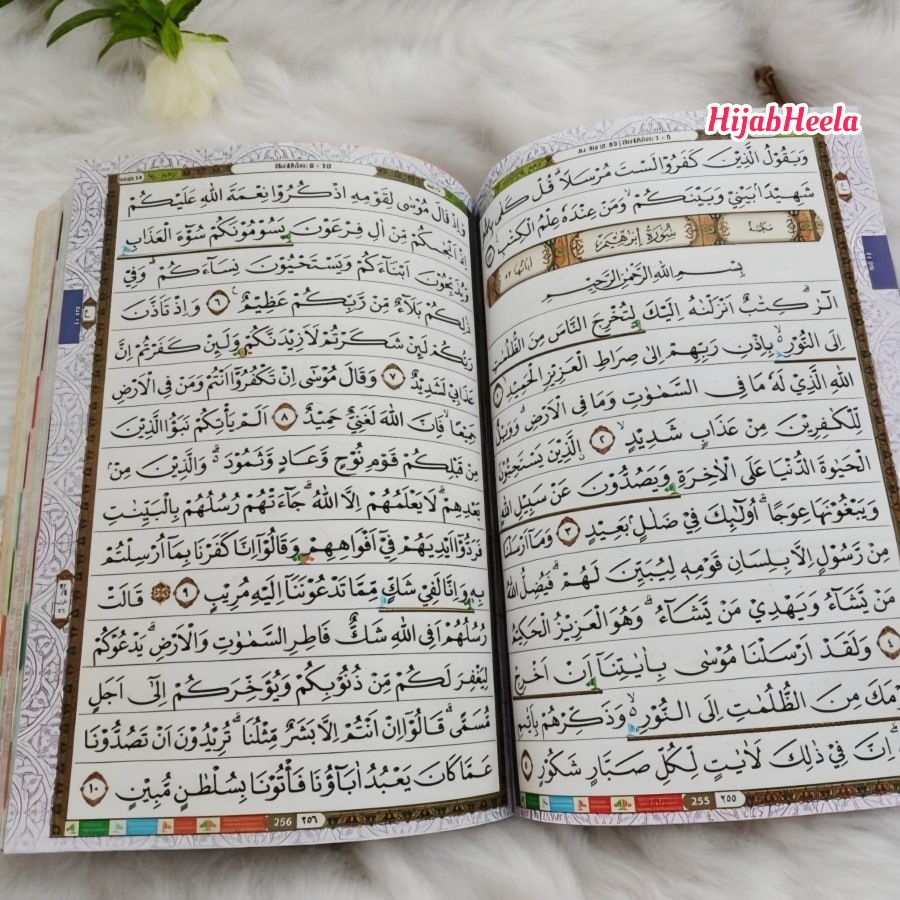 HijabHeela
وَيَقُوْلُ الَّذِيْنَ كَفَرُوْا لَسْتَ مُرْسَلًاۗ قُلْ كَفٰى بِاللّٰهِ
شَهِيْدًاۢ بَيْنِيْ وَبَيْنَكُمْۙ وَمَنْ عِنْدَهٗ عِلْمُ الْكِتٰبِ
مَكِّيَّة سُوْرَةُ اِبْرٰهِيْمَ اٰيَاتُهَا ٥٢
بِسْمِ اللّٰهِ الرَّحْمٰنِ الرَّحِيْمِ
الۤرٰۗ كِتٰبٌ اَنْزَلْنٰهُ اِلَيْكَ لِتُخْرِجَ النَّاسَ مِنَ الظُّلُمٰتِ
اِلَى النُّوْرِ ەۙ بِاِذْنِ رَبِّهِمْ اِلٰى صِرَاطِ الْعَزِيْزِ الْحَمِيْدِۙ ١
اللّٰهِ الَّذِيْ لَهٗ مَا فِى السَّمٰوٰتِ وَمَا فِى الْاَرْضِۗ وَوَيْلٌ
لِّلْكٰفِرِيْنَ مِنْ عَذَابٍ شَدِيْدٍۙ ٢ ۨالَّذِيْنَ يَسْتَحِبُّوْنَ
الْحَيٰوةَ الدُّنْيَا عَلَى الْاٰخِرَةِ وَيَصُدُّوْنَ عَنْ سَبِيْلِ اللّٰهِ
وَيَبْغُوْنَهَا عِوَجًاۗ اُولٰۤىِٕكَ فِيْ ضَلٰلٍۢ بَعِيْدٍ ٣ وَمَآ اَرْسَلْنَا
مِنْ رَّسُوْلٍ اِلَّا بِلِسَانِ قَوْمِهٖ لِيُبَيِّنَ لَهُمْۗ فَيُضِلُّ اللّٰهُ
مَنْ يَّشَاۤءُ وَيَهْدِيْ مَنْ يَّشَاۤءُۗ وَهُوَ الْعَزِيْزُ الْحَكِيْمُ
٤ وَلَقَدْ اَرْسَلْنَا مُوْسٰى بِاٰيٰتِنَآ اَنْ اَخْرِجْ
مَكَ مِنَ الظُّلُمٰتِ اِلَى النُّوْرِ ەۙ وَذَكِّرْهُمْ بِاَيّٰىمِ
اِنَّ فِيْ ذٰلِكَ لَاٰيٰتٍ لِّكُلِّ صَبَّارٍ شَكُوْرٍ ٥
255 ٢٥٥
وَاِذْ قَالَ مُوْسٰى لِقَوْمِهِ اذْكُرُوْا نِعْمَةَ اللّٰهِ عَلَيْكُمْ
اِذْ اَنْجٰىكُمْ مِّنْ اٰلِ فِرْعَوْنَ يَسُوْمُوْنَكُمْ سُوْۤءَ الْعَذَابِ
وَيُذَبِّحُوْنَ اَبْنَاۤءَكُمْ وَيَسْتَحْيُوْنَ نِسَاۤءَكُمْۗ وَفِيْ
ذٰلِكُمْ بَلَاۤءٌ مِّنْ رَّبِّكُمْ عَظِيْمٌࣖ ٦ وَاِذْ تَاَذَّنَ
رَبُّكُمْ لَىِٕنْ شَكَرْتُمْ لَاَزِيْدَنَّكُمْ وَلَىِٕنْ كَفَرْتُمْ اِنَّ
عَذَابِيْ لَشَدِيْدٌ ٧ وَقَالَ مُوْسٰٓى اِنْ تَكْفُرُوْٓا اَنْتُمْ وَمَنْ فِى الْاَرْضِ
جَمِيْعًاۙ فَاِنَّ اللّٰهَ لَغَنِيٌّ حَمِيْدٌ ٨ اَلَمْ يَأْتِكُمْ نَبَؤُا الَّذِيْنَ
مِنْ قَبْلِكُمْ قَوْمِ نُوْحٍ وَّعَادٍ وَّثَمُوْدَۗ وَالَّذِيْنَ مِنْۢ
بَعْدِهِمْۗ لَا يَعْلَمُهُمْ اِلَّا اللّٰهُۗ جَاۤءَتْهُمْ رُسُلُهُمْ بِالْبَيِّنٰتِ
فَرَدُّوْٓا اَيْدِيَهُمْ فِيْٓ اَفْوَاهِهِمْ وَقَالُوْٓا اِنَّا كَفَرْنَا بِمَآ اُرْسِلْتُمْ
بِهٖ وَاِنَّا لَفِيْ شَكٍّ مِّمَّا تَدْعُوْنَنَآ اِلَيْهِ مُرِيْبٍ ٩ ۞ قَالَتْ
رُسُلُهُمْ اَفِى اللّٰهِ شَكٌّ فَاطِرِ السَّمٰوٰتِ وَالْاَرْضِۗ يَدْعُوْكُمْ
لِيَغْفِرَ لَكُمْ مِّنْ ذُنُوْبِكُمْ وَيُؤَخِّرَكُمْ اِلٰٓى اَجَلٍ
مُّسَمًّىۗ قَالُوْٓا اِنْ اَنْتُمْ اِلَّا بَشَرٌ مِّثْلُنَاۗ تُرِيْدُوْنَ اَنْ تَصُدُّوْنَا
عَمَّا كَانَ يَعْبُدُ اٰبَاۤؤُنَا فَأْتُوْنَا بِسُلْطٰنٍ مُّبِيْنٍ ١٠
256 ٢٥٦